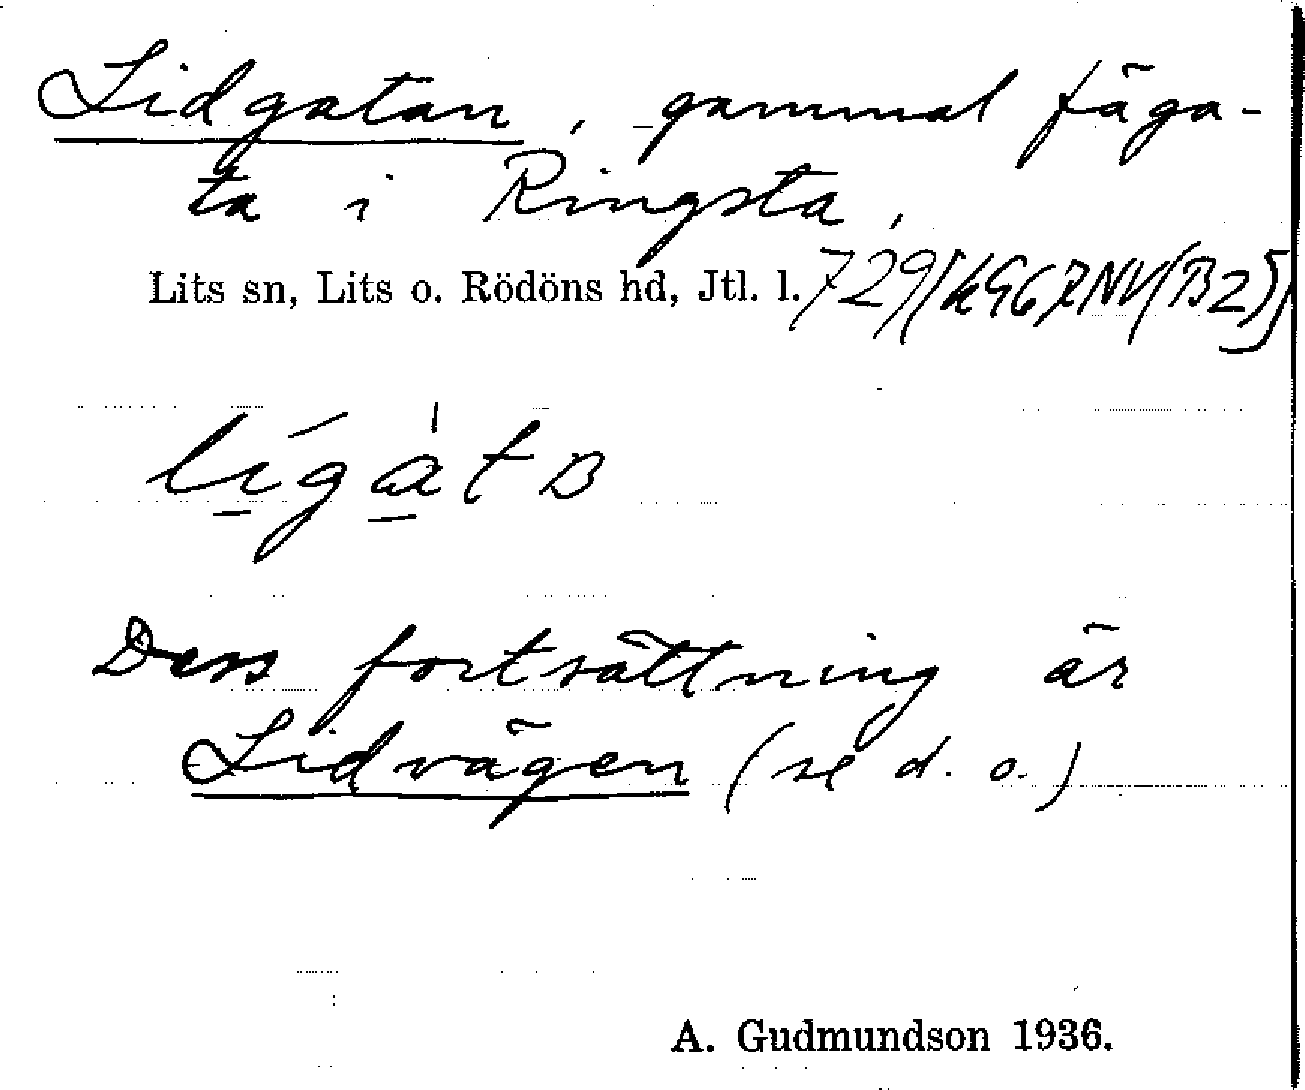 Lidgatan, gammal fäga-
ta i Ringsta,
Lits sn, Lits o. Rödöns hd, Jtl. l. 729
Dess fortsättning är
Lidvägen (se d. o.)
A. Gudmundson 1936.